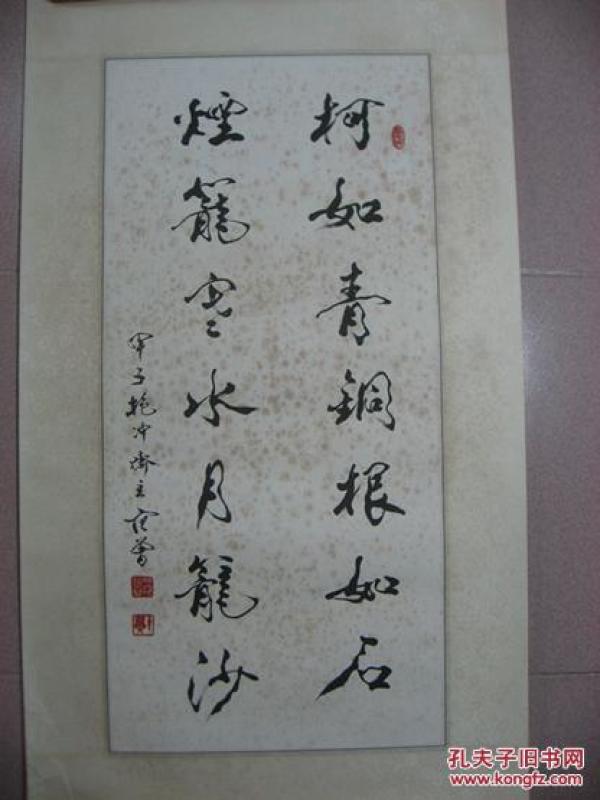 柯如青銅根如石
煙籠寒水月籠沙
甲子抱冲齋主范曾
孔夫子旧书网
www.kongfz.com